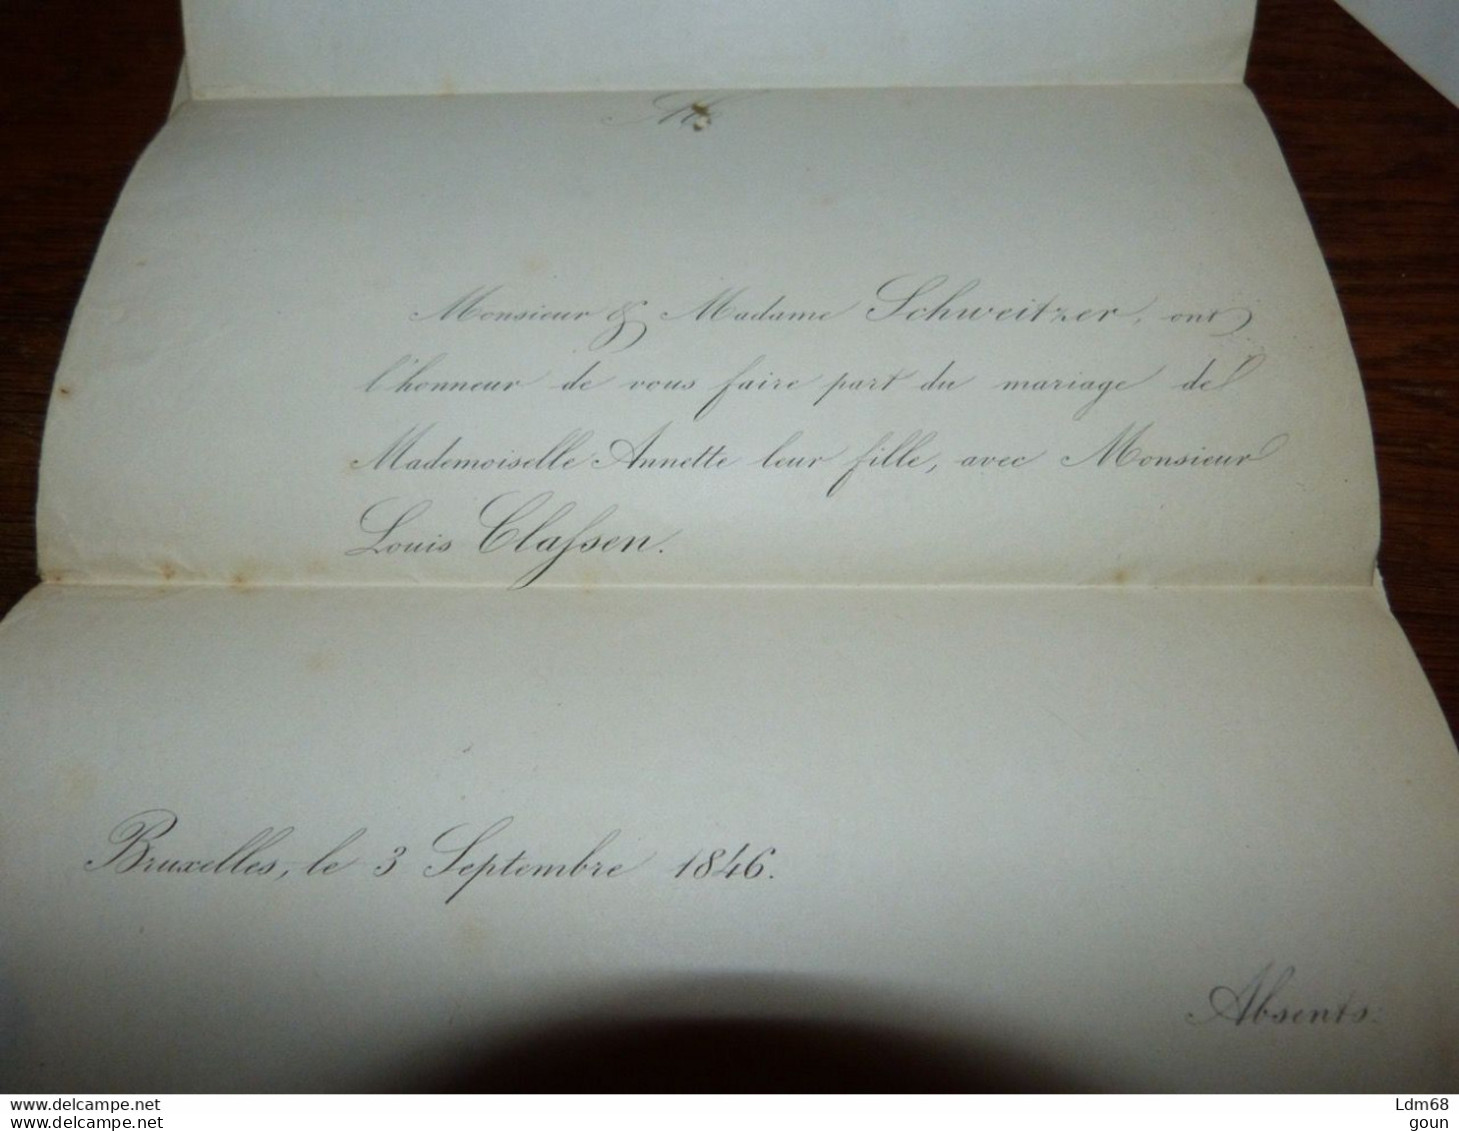 M
Monsieur & Madame Schweitzer, ont
l'honneur de vous faire part du mariage de
Mademoiselle Annette leur fille, avec Monsieur
Louis Claſsen.
Bruxelles, le 3 Septembre 1846.
Absents.
www.delcampe.net
www.delcampe.net
Ldm68
goun